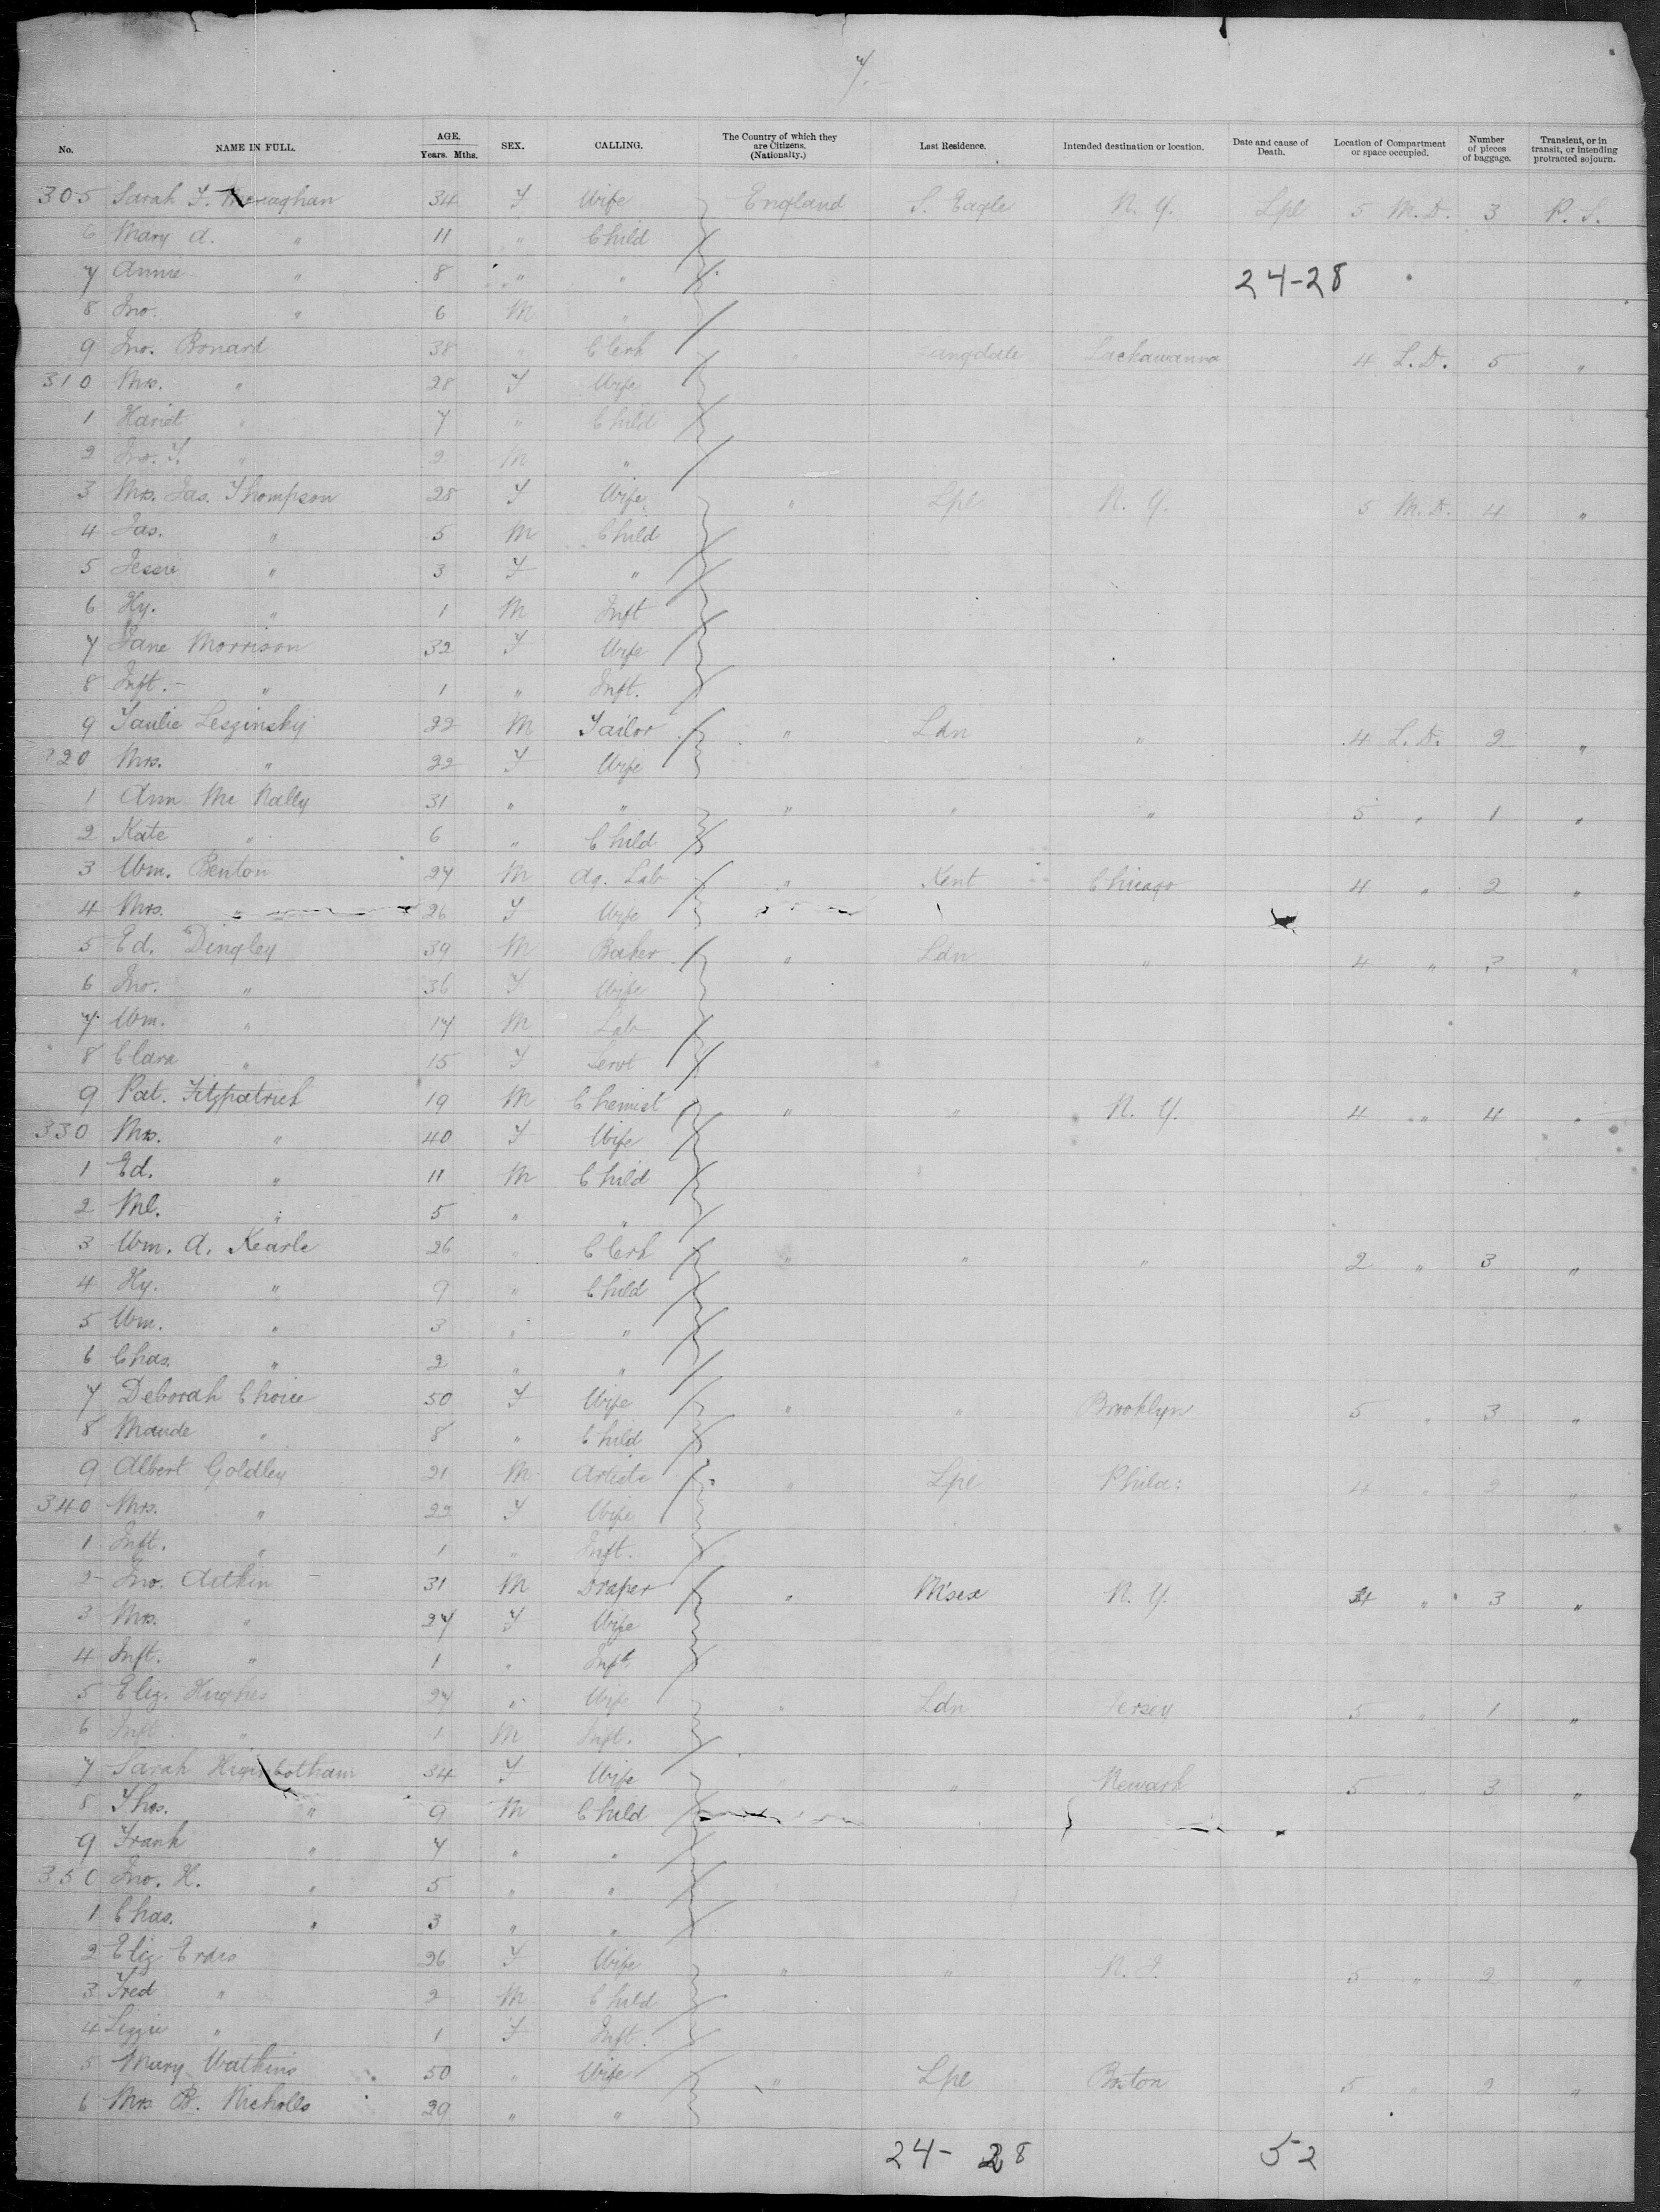 7.
No. NAME IN FULL. AGE. Years. Mths. SEX. CALLING. The Country of which they are Citizens. (Nationalty.) Last Residence. Intended destination or location. Date and cause of Death. Location of Compartment or space occupied. Number of pieces of baggage. Transient, or in transit, or intending protracted sojourn.
305 Sarah F. 34 F Wife England S. Eagle N. Y. Lpl 5 M. D. 3 P. S.
6 Mary A. " 11 " Child
7 Annie " 8 " "
24-28
8 Jno. " 6 M "
9 Jno. Bonard 38 " Clerk " Langdale Lackawanna 4 L. D. 5 "
310 Mrs. " 28 F Wife
1 Hariet " 7 " Child
2 Jno. F. " 2 M "
3 Mrs. Jas. Thompson 28 F Wife " Lpl N. Y. 5 M. D. 4 "
4 Jas. " 5 M Child
5 Jessie " 3 F "
6 Hy. " 1 M Inft
7 Jane Morrison 32 F Wife
8 Inft. - " 1 " Inft.
9 Leszinsky 22 M Tailor " Ldn " 4 L. D. 2 "
320 Mrs. " 22 F Wife
1 Ann Mc Nally 31 " " " " " 5 " 1 "
2 Kate " 6 " Child
3 Wm. Benton 27 M Ag. Lab " Kent Chicago 4 " 2 "
4 Mrs. " 26 F Wife
5 Ed. Dingley 39 M Baker " Ldn " 4 " 3 "
6 Jno. " 36 F Wife
7 Wm. " 17 M Lab
8 Clara " 15 F Servt
9 Pat. Fitzpatrick 19 M Chemist " " N. Y. 4 " 4 "
330 Mrs. " 40 F Wife
1 Ed. " 11 M Child
2 Ml. " 5 " "
3 Wm. A. Kearle 26 " Clerk " " " 2 " 3 "
4 Hy. " 9 " Child
5 Wm. " 3 " "
6 Chas. " 2 " "
7 Deborah Choice 50 F Wife " " Brooklyn 5 " 3 "
8 Maude " 8 " Child
9 Albert Goldley 21 M Artiste " Lpl Phila: 4 " 2 "
340 Mrs. " 22 F Wife
1 Inft. " 1 " Inft.
2 Jno. Aitkin 31 M Draper " M'sex N. Y. 4 " 3 "
3 Mrs. " 27 F Wife
4 Inft. " 1 " Inft.
5 Eliz. Hughes 24 " Wife " Ldn Jersey 5 " 1 "
6 Inft " 1 M Inft.
7 Sarah Higinbotham 34 F Wife " " Newark 5 " 3 "
8 Thos. " 9 M Child
9 Frank " 7 " "
350 Jno. H. " 5 " "
1 Chas. " 3 " "
2 Eliz 26 F Wife " " N. J. 5 " 2 "
3 Fred " 2 M Child
4 Lizzie " 1 F Inft.
5 Mary Watkins 50 " Wife " Lpl Boston 5 " 2 "
6 Mrs. B. Nicholls 29 " "
24- 28 52